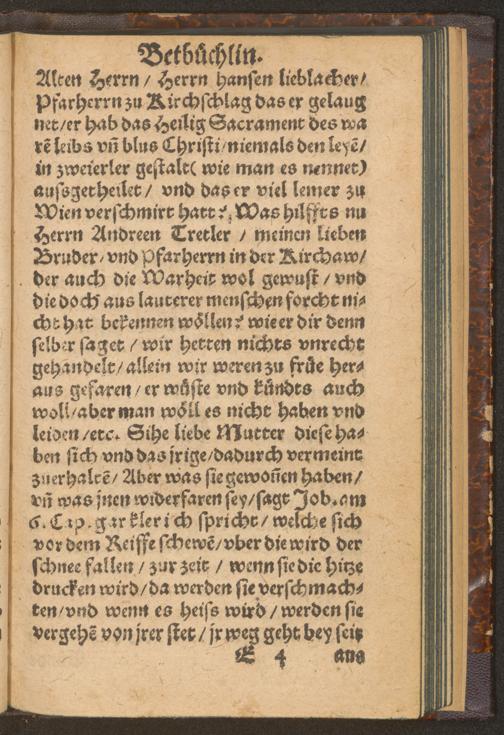 Betbüchlin.
Alten Herrn / Herrn hansen lieblacher /
Pfarherrn zu Kirchschlag das er gelaug
net / er hab das Heilig Sacrament des wa
rē leibs vn̄ blus Christi / niemals den leyē /
in zweierler gestalt ( wie man es nennet )
aussgetheilet / vnd das er viel lemer zu
Wien verschmirt hatt ?, Was hilffts nu
Herrn Andreen Tretler / meinen lieben
Bruder / vnd Pfarherrn in der Kirchaw /
der auch die Warheit wol gewust / vnd
die doch aus lauterer menschen forcht ni-
cht hat bekennen wöllen ? wie er dir denn
selber saget / wir hetten nichts vnrecht
gehandelt / allein wir weren zu früe her-
aus gefaren / er wüste vnd kündts auch
woll / aber man wöll es nicht haben vnd
leiden / etc. Sihe liebe Mutter diese ha-
ben sich vnd das jrige / dadurch vermeint
zuerhaltē / Aber was sie gewoñen haben /
vn̄ was jnen widerfaren sey / sagt Job. am
6. Cap. gar kler ich spricht / welche sich
vor dem Reiffe schewē / vber die wird der
schnee fallen / zur zeit / wenn sie die hitze
drucken wird / da werden sie verschmach-
ten / vnd wenn es heiss wird / werden sie
vergehē von jrer stet / jr weg geht bey seit
E 4 aus